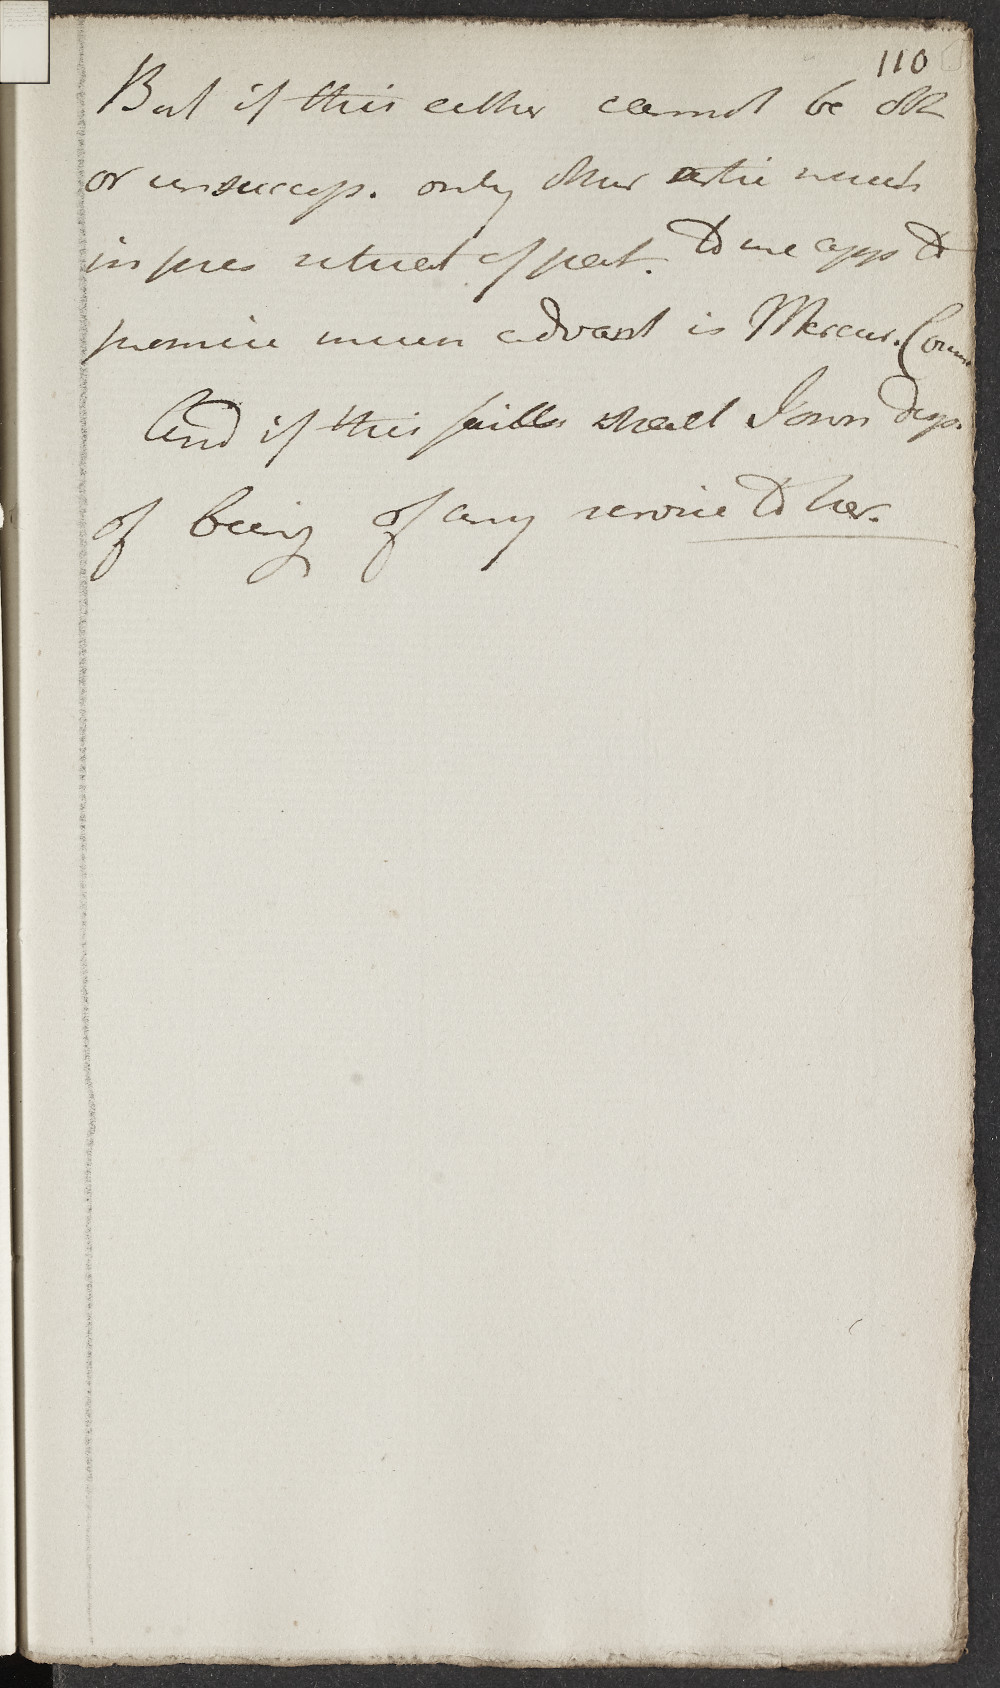 110
But if this either cannot be
or unsuccess. only other active much
in pres situat of pat. To me apps to
promise much advant is Mercur. Corros
And if this fails shall I own desp.
of being of any service to her.